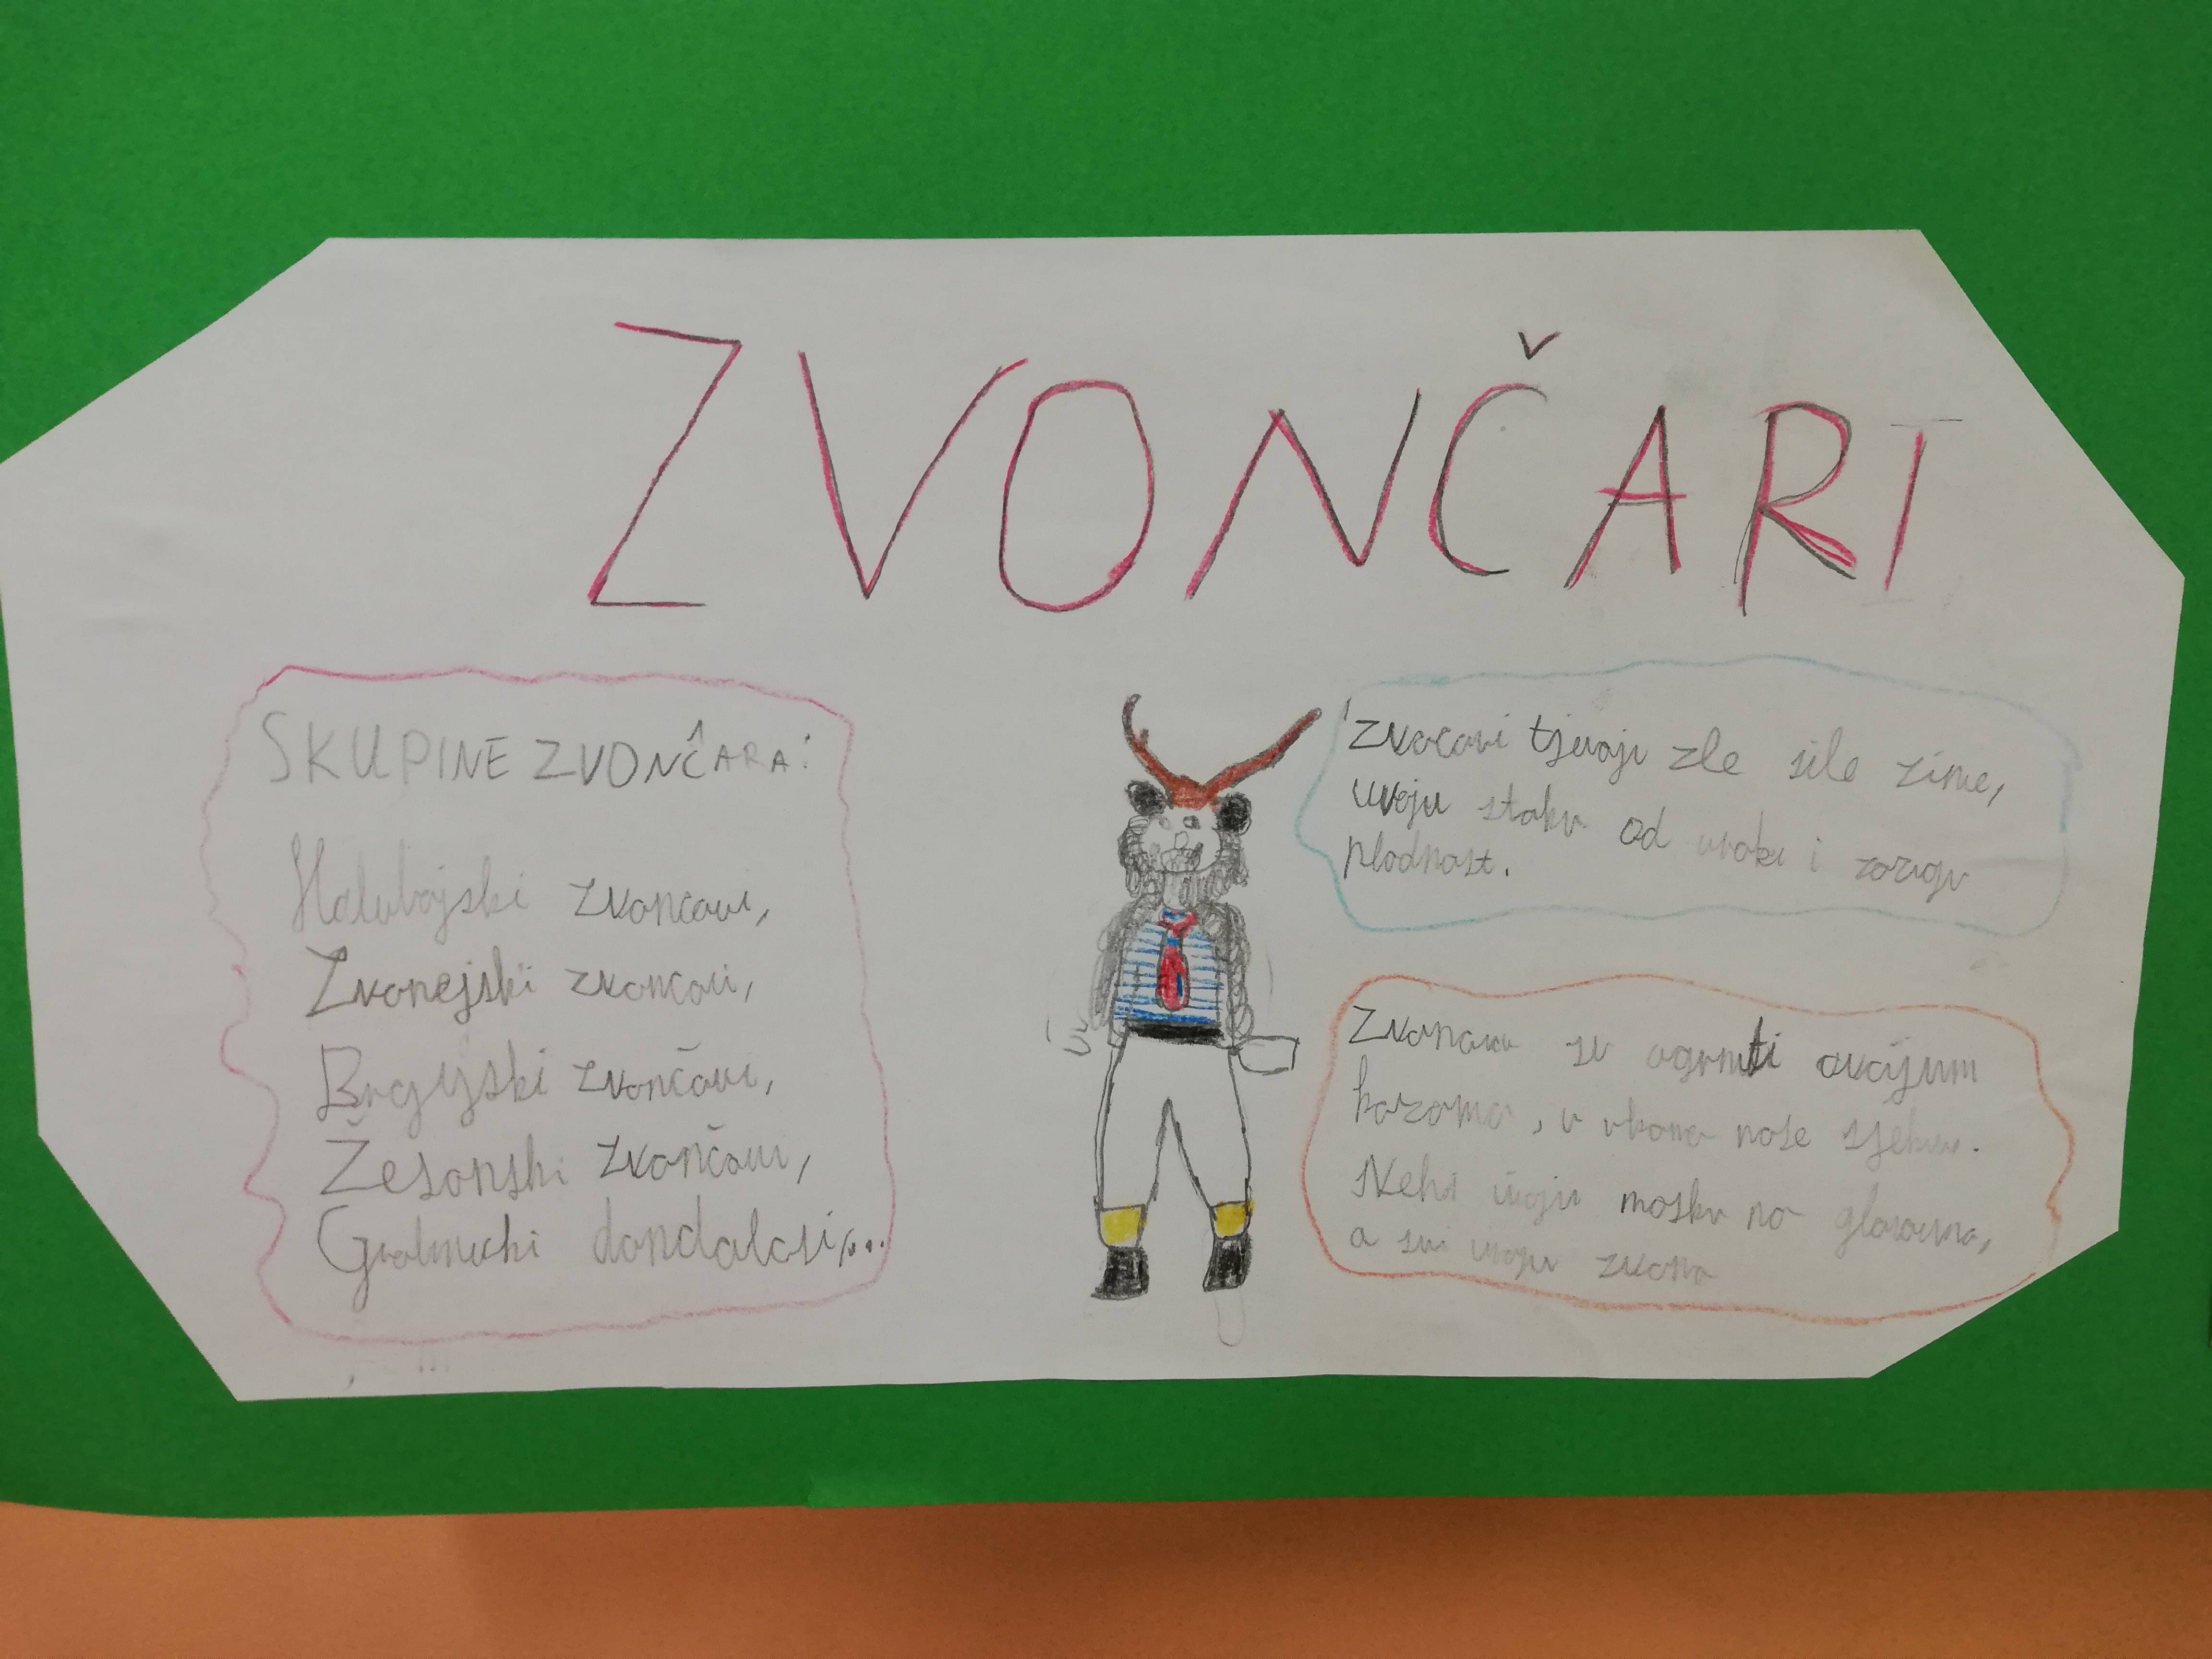 ZVONČARI
SKUPINE ZVONČARA:
Halubajski zvončari,
Zvonejski zvončari,
Brgujski zvončari,
Žejanski zvončari,
Grobnički dondolaši,...
Zvočari tjeraju zle sile zime,
stoku od uroka i zazivaju
plodnost.
Zvončari su ogrnuti ovčjom
kožama, u rukama nose sjekiru.
Neki imaju masku na glavama,
a svi imaju zvona